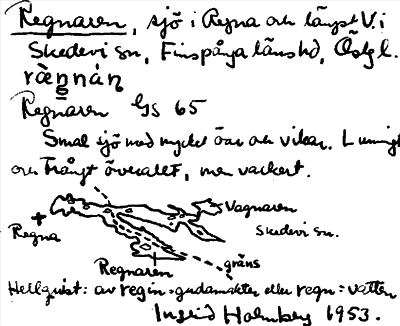 Regnaren, sjö i Regna och längst V. i
Skedevi sn, Finspånga länshd, Östg l.
rä̀gnàṇ
Regnaren GS 65
Smal sjö med mycket öar och vikar. Lummigt
och trångt överallt, men vackert.
Vagnaren
Regna
Skedevi sn.
Regnaren
gräns
Hellquist: av regin = gudamakter eller regn = vatten
Ingrid Holmberg 1953.